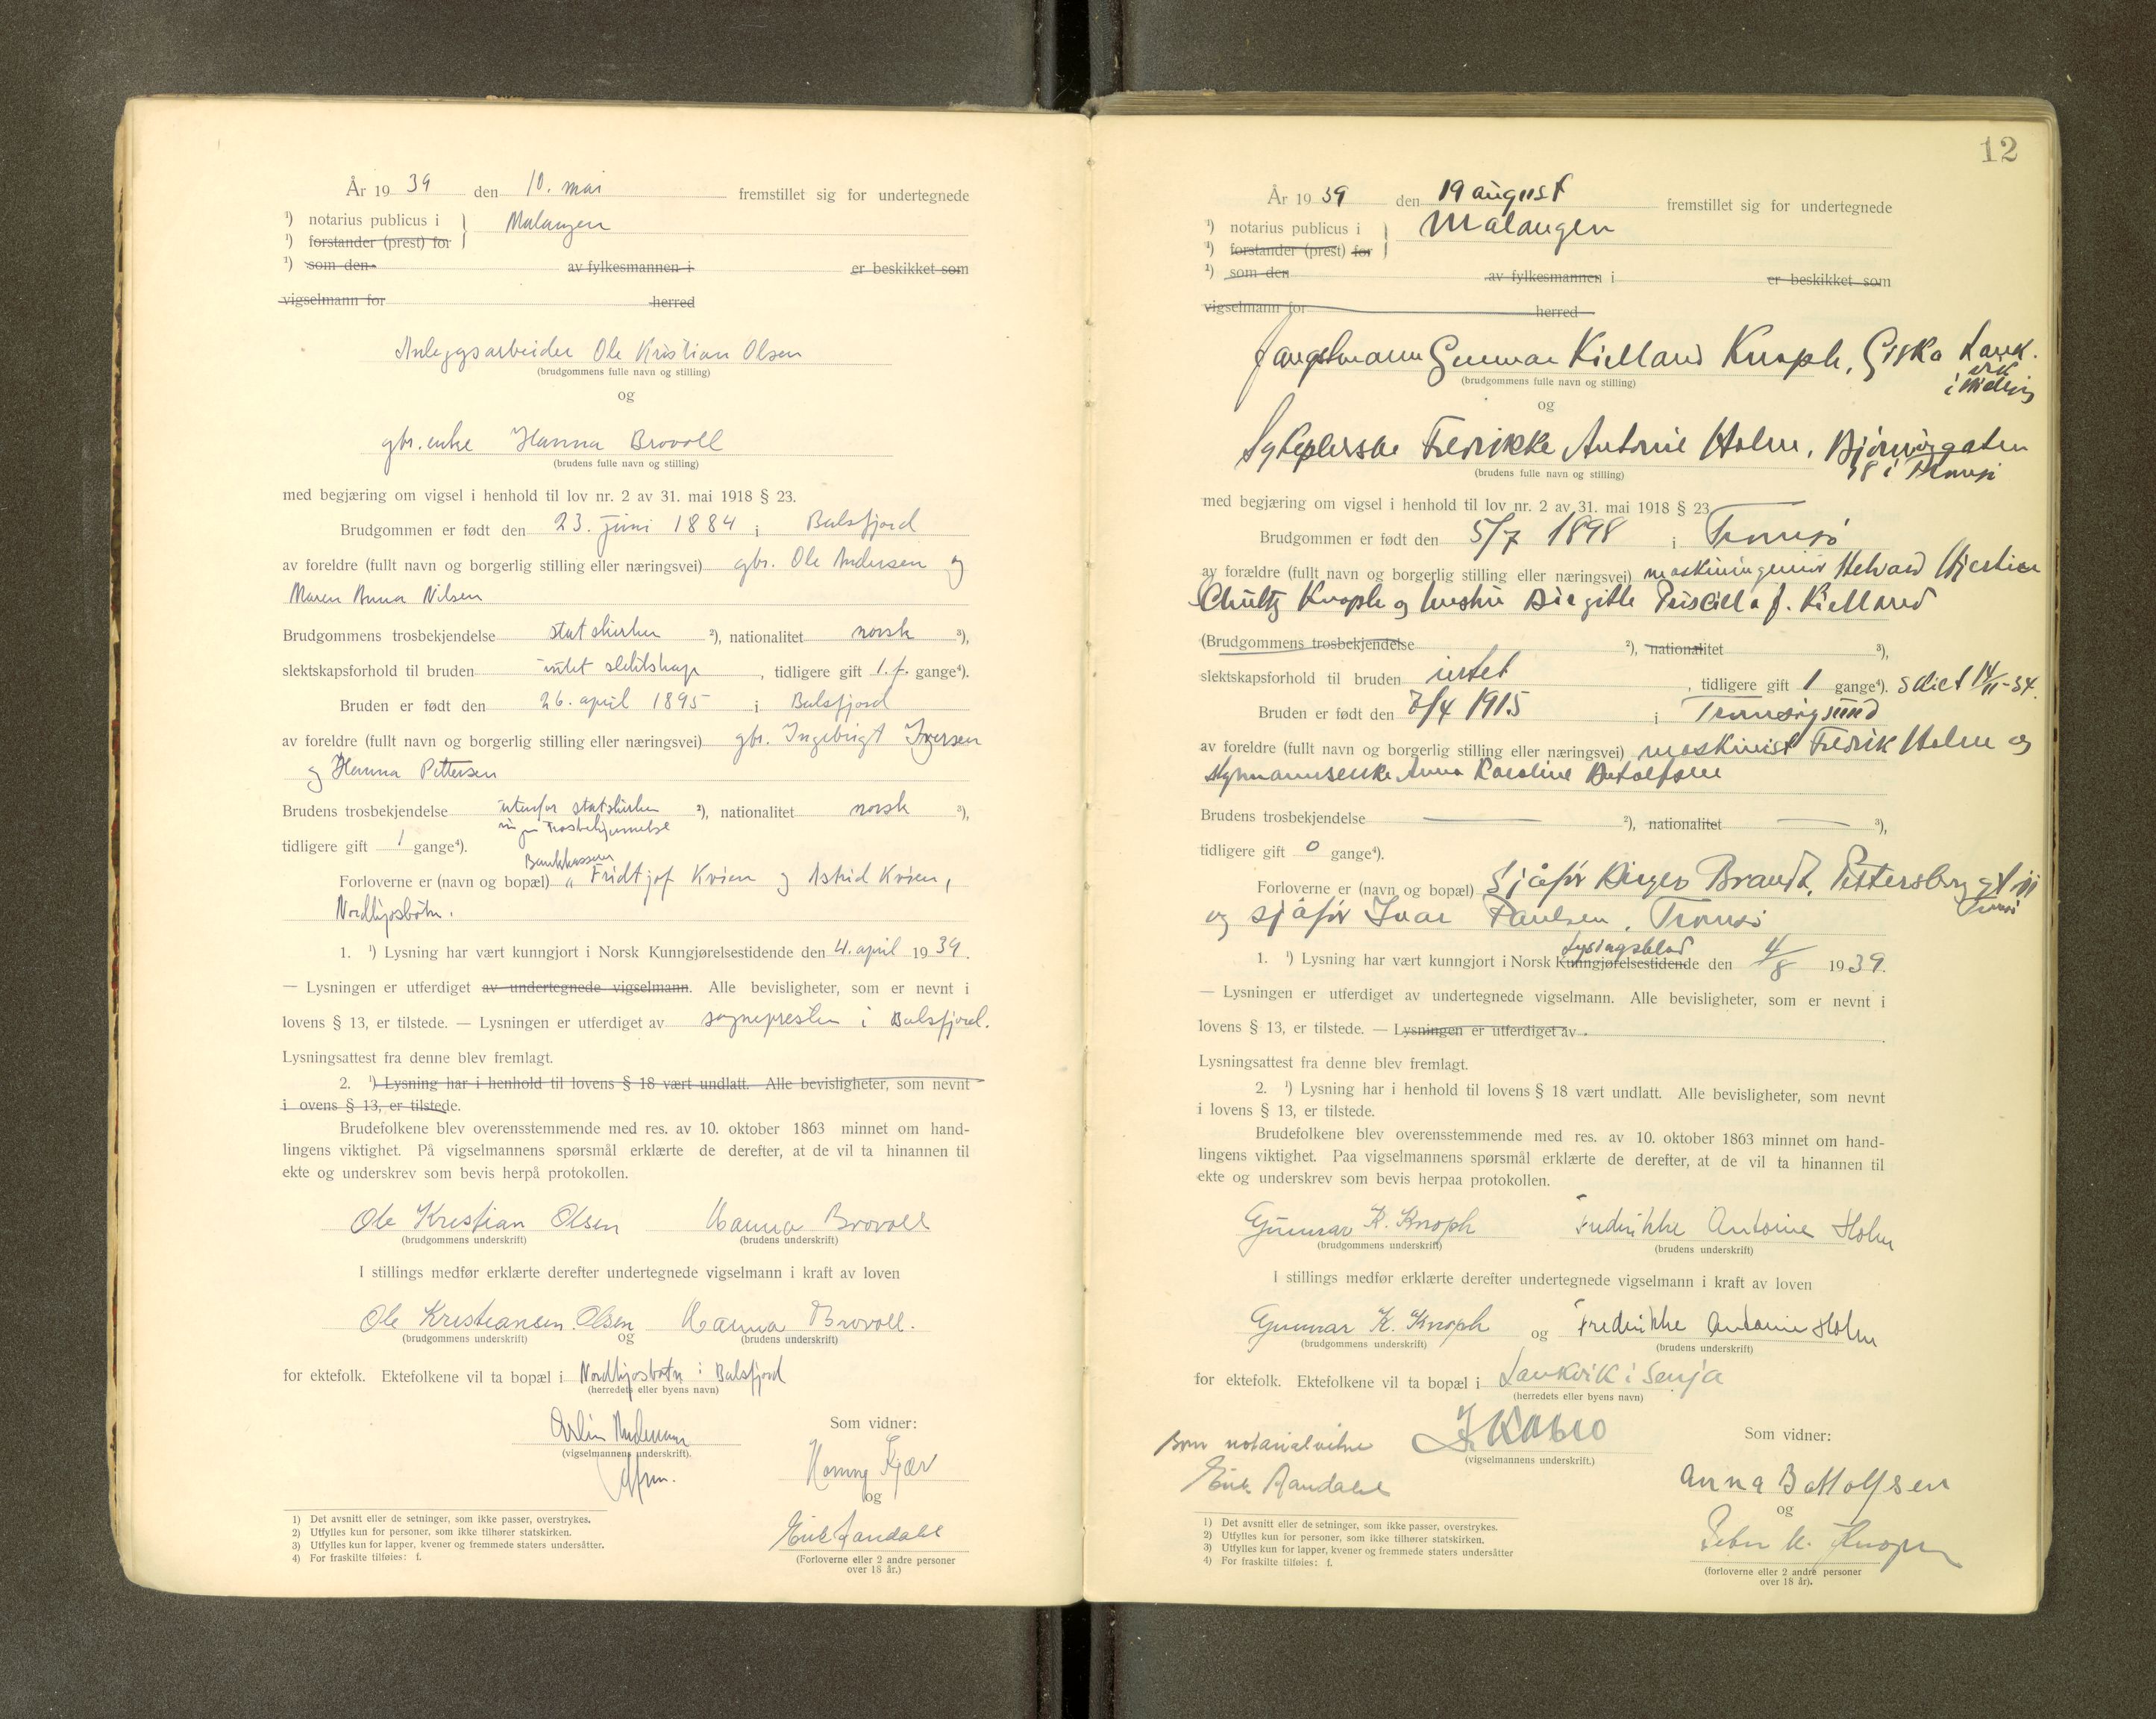 År 19 39 den 10. mai fremstillet sig for undertegnede
¹) notarius publicus i } Malangen
¹) forstander (prest) for
¹) som den av fylkesmannen i er beskikket som
vigselmann for herred
Anleggsarbeider Ole Kristian Olsen
(brudgommens fulle navn og stilling)
og
gbr. enke Hanna Brovoll
(brudens fulle navn og stilling)
med begjæring om vigsel i henhold til lov nr. 2 av 31. mai 1918 § 23.
Brudgommen er født den 23. juni 1884 i Balsfjord
av foreldre (fullt navn og borgerlig stilling eller næringsvei) gbr. Ole Andersen og
Maren Anna Nilsen
Brudgommens trosbekjendelse statskirken ²), nationalitet norsk ³),
slektskapsforhold til bruden intet slektskap, tidligere gift 1. f. gange⁴).
Bruden er født den 26. april 1895 i Balsfjord
av foreldre (fullt navn og borgerlig stilling eller næringsvei) gbr. Ingebrigt Iversen
og Hanna Pettersen
Brudens trosbekjendelse utenfor statskirken ²), nationalitet norsk ³),
ingen trosbekjennelse
tidligere gift 1 gange⁴).
Bankkasserer
Forloverne er (navn og bopæl) Fridtjof Kvien og Astrid Kvien,
Nordkjosbotn.
1. ¹) Lysning har vært kunngjort i Norsk Kunngjørelsestidende den 4. april 19 39.
— Lysningen er utferdiget av undertegnede vigselmann. Alle bevisligheter, som er nevnt i
lovens § 13, er tilstede. — Lysningen er utferdiget av sognepresten i Balsfjord.
Lysningsattest fra denne blev fremlagt.
2. ¹) Lysning har i henhold til lovens § 18 vært undlatt. Alle bevisligheter, som nevnt
i ovens § 13, er tilstede.
Brudefolkene blev overensstemmende med res. av 10. oktober 1863 minnet om hand-
lingens viktighet. På vigselmannens spørsmål erklærte de derefter, at de vil ta hinannen til
ekte og underskrev som bevis herpå protokollen.
Ole Kristian Olsen Hanna Brovoll
(brudgommens underskrift) (brudens underskrift)
I stillings medfør erklærte derefter undertegnede vigselmann i kraft av loven
Ole Kristiansen Olsen Hanna Brovoll.
(brudgommens underskrift) og (brudens underskrift)
for ektefolk. Ektefolkene vil ta bopæl i Nordkjosbotn i Balsfjord
(herredets eller byens navn)
Som vidner:
(vigselmannens underskrift).
Henny Kjær
og
Erik Aandahl
(Forloverne eller 2 andre personer
over 18 år.)
1) Det avsnitt eller de setninger, som ikke passer, overstrykes.
2) Utfylles kun for personer, som ikke tilhører statskirken.
3) Utfylles kun for lapper, kvener og fremmede staters undersåtter.
4) For fraskilte tilføies: f.
12
År 19 39 den 19 august fremstillet sig for undertegnede
¹) notarius publicus i } Malangen
¹) forstander (prest) for
¹) som den av fylkesmannen i er beskikket som
vigselmann for herred
Fangstmann Gunnar Kielland Knoph, Giska Lank.
vik
(brudgommens fulle navn og stilling)
og
Sykepleerske Fredrikke Antonie Holm, Bjørnøygaten
38 i Tromsø
(brudens fulle navn og stilling)
med begjæring om vigsel i henhold til lov nr. 2 av 31. mai 1918 § 23
Brudgommen er født den 5/7 1898 i Tromsø
av forældre (fullt navn og borgerlig stilling eller næringsvei) maskiningeniør Halvard Christian
Schultz Knoph og hustru Birgitte Priscilla f. Kielland
(Brudgommens trosbekjendelse ²), nationalitet ³),
slektskapsforhold til bruden intet, tidligere gift 1 gange⁴). skilt 14/11-34.
Bruden er født den 7/4 1915 i Tromsøysund
av foreldre (fullt navn og borgerlig stilling eller næringsvei) maskinist Fredrik Holm og
styrmannsenke Anna Karoline Botolfsen
Brudens trosbekjendelse — ²), nationalitet — ³),
tidligere gift 0 gange⁴).
Forloverne er (navn og bopæl) Sjåfør Birger Brandt, Pettersborggt 11
Tromsø
og sjåfør Ivar Paulsen, Tromsø
Lysingsblad
1. ¹) Lysning har vært kunngjort i Norsk Kunngjørelsestidende den 4/8 1939.
— Lysningen er utferdiget av undertegnede vigselmann. Alle bevisligheter, som er nevnt i
lovens § 13, er tilstede. — Lysningen er utferdiget av
Lysningsattest fra denne blev fremlagt.
2. ¹) Lysning har i henhold til lovens § 18 vært undlatt. Alle bevisligheter, som nevnt
i lovens § 13, er tilstede.
Brudefolkene blev overensstemmende med res. av 10. oktober 1863 minnet om hand-
lingens viktighet. Paa vigselmannens spørsmål erklærte de derefter, at de vil ta hinannen til
ekte og underskrev som bevis herpaa protokollen.
Gunnar K. Knoph Fredrikke Antonie Holm
(brudgommens underskrift) (brudens underskrift)
I stillings medfør erklærte derefter undertegnede vigselmann i kraft av loven
Gunnar K. Knoph og Fredrikke Antonie Holm
(brudgommens underskrift) (brudens underskrift)
for ektefolk. Ektefolkene vil ta bopæl i Lankvik i Senja
(herredets eller byens navn)
Som notarialvitne
Som vidner:
(vigselmannens underskrift.)
Erik Aandahl
Anna Botolfsen
og
Peter K. Knoph
(forloverne eller 2 andre personer
over 18 år).
1) Det avsnitt eller de setninger, som ikke passer, overstrykes.
2) Utfylles kun for personer, som ikke tilhører statskirken.
3) Utfylles kun for lapper, kvener og fremmede staters undersåtter
4) For fraskilte tilføies: f.